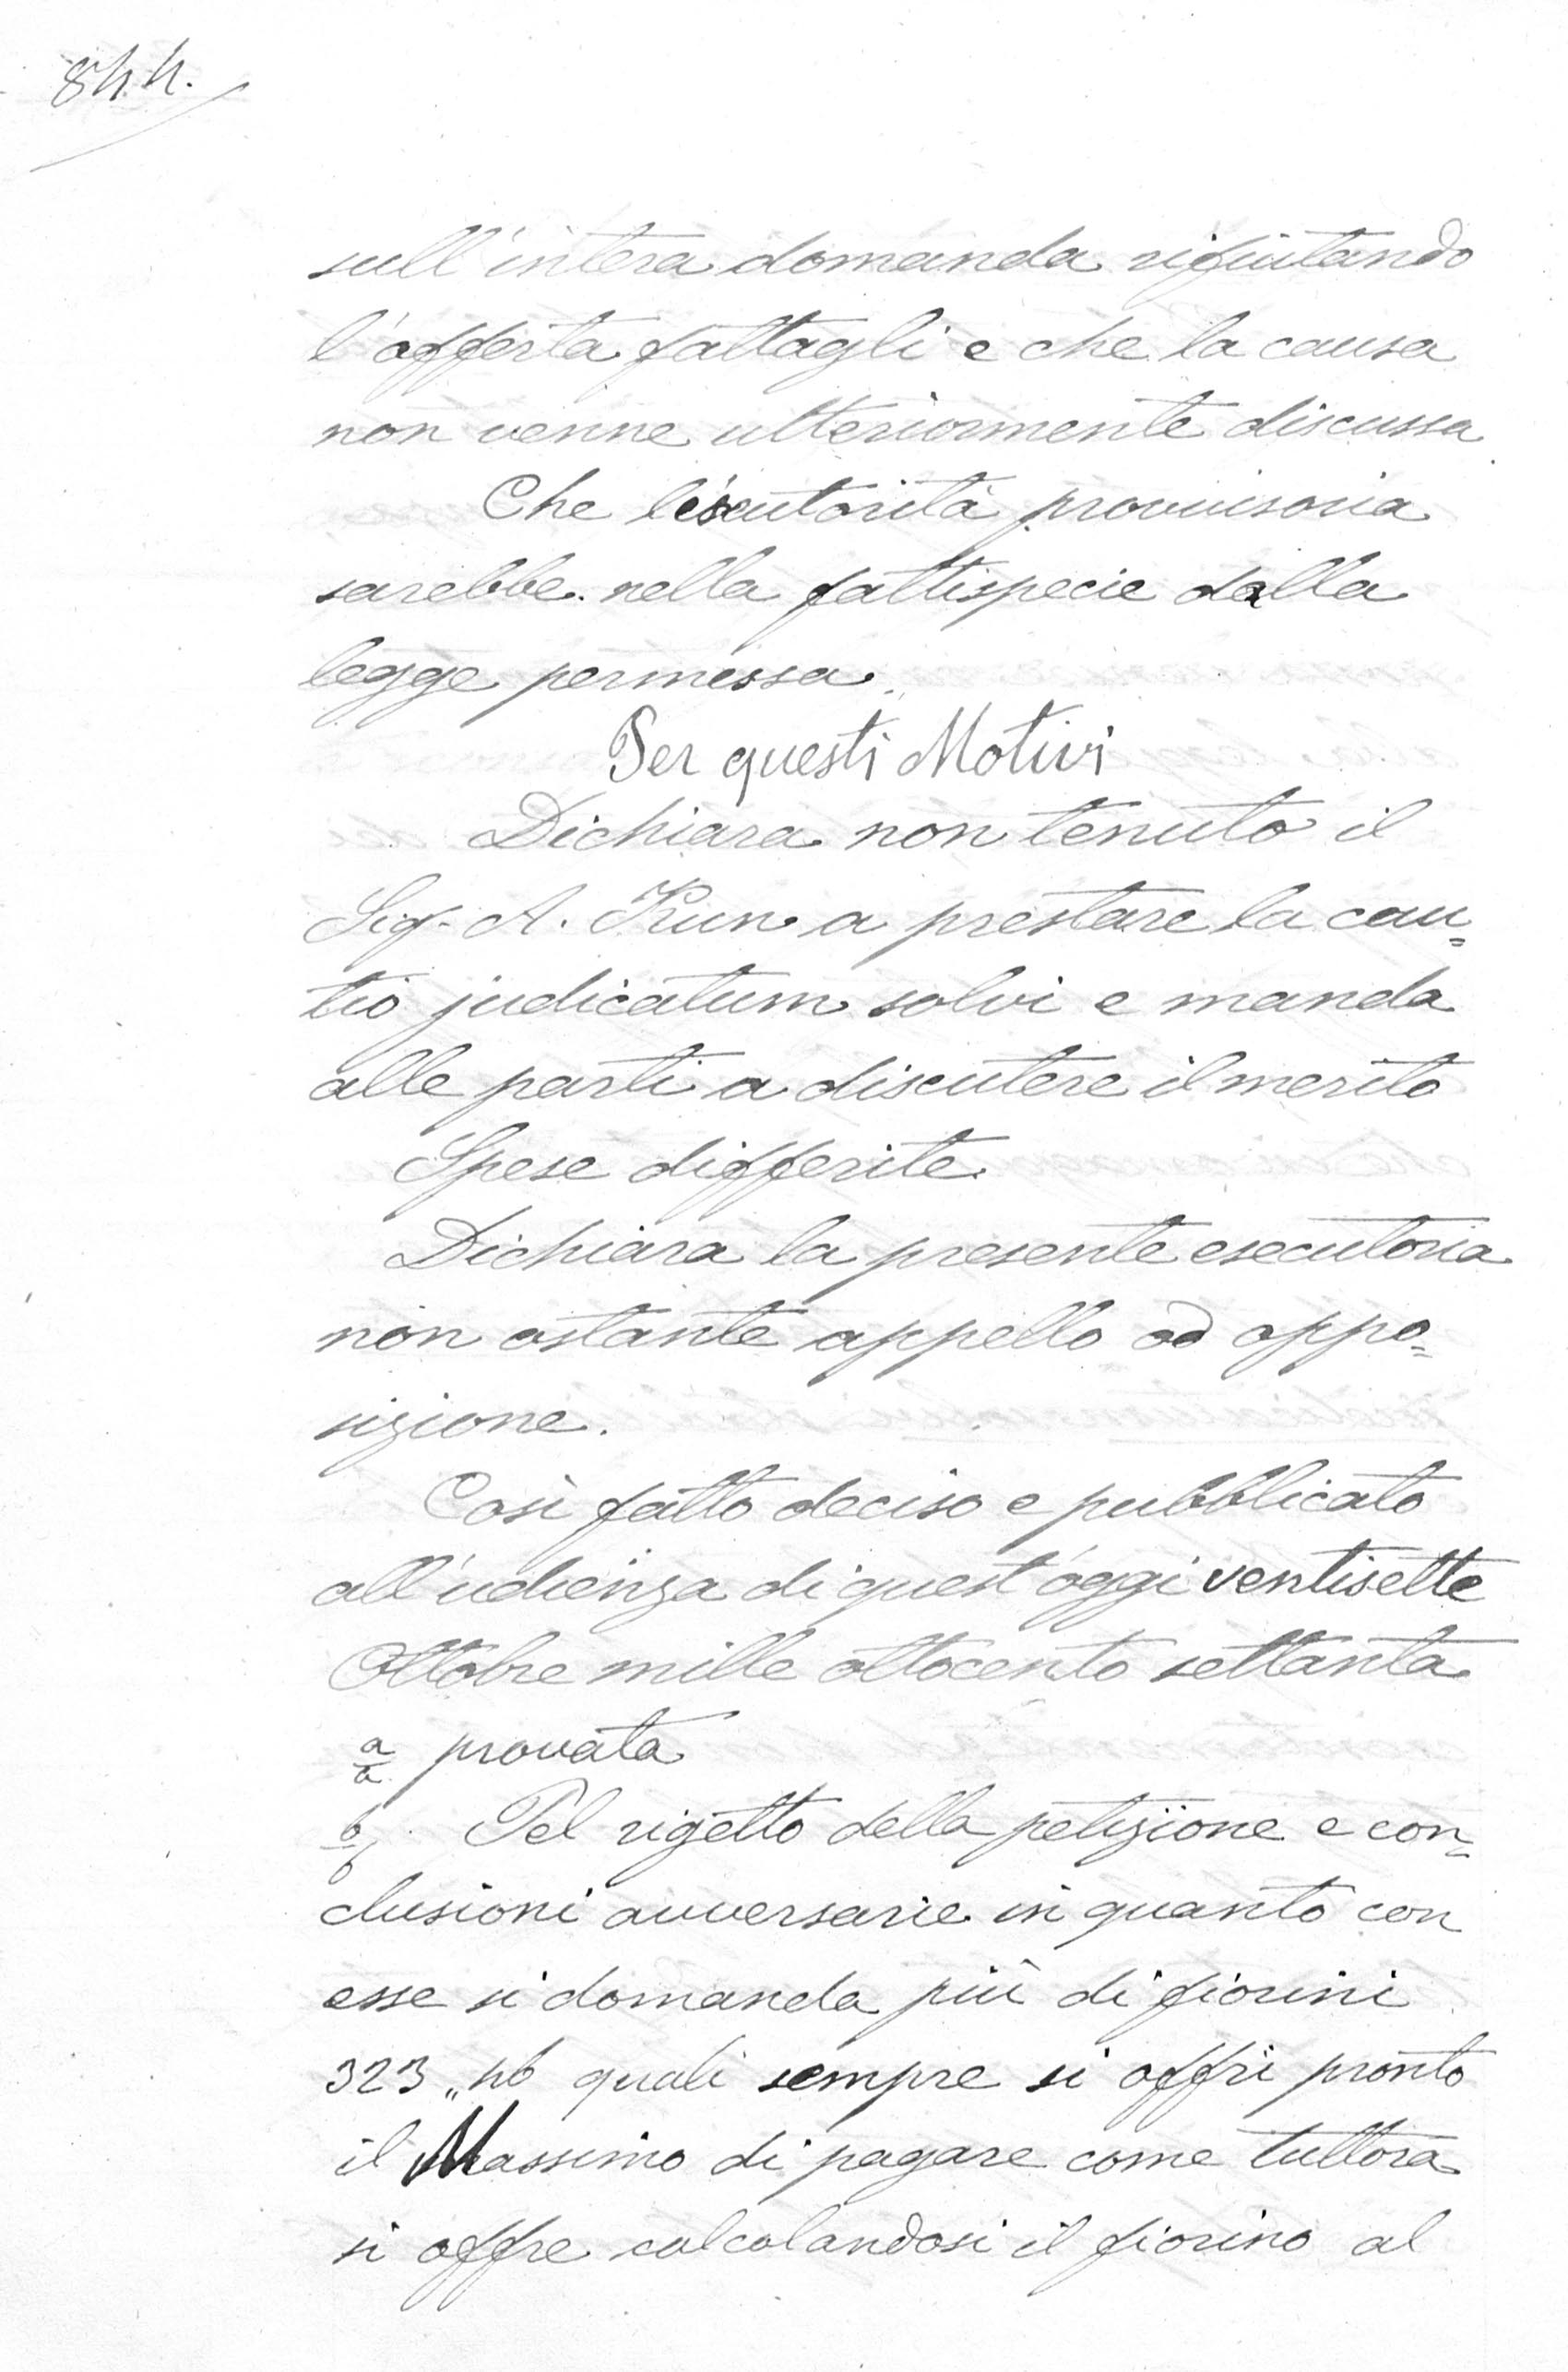 844.
sull'intera domanda rifiutando
l'offerta fattagli e che la causa
non venne ulteriormente discussa.
Che l'esecutorità provvisoria
sarebbe nella fattispecie dalla
legge permessa.
Per questi Motivi
Dichiara non tenuto il
Sig. A. Kun a prestare la cau=
tio judicatum solvi e manda
alle parti a discutere il merito
Spese differite.
Dichiara la presente esecutoria
non ostante appello od oppo=
sizione.
Così fatto deciso e pubblicato
all'udienza di quest'oggi ventisette
Ottobre mille ottocento settanta
a/a provata
b/b. Pel rigetto della petizione e con=
clusioni avversarie in quanto con
esse si domanda più di fiorini
323 „ 46 quali sempre si offrì pronto
il Massimo di pagare come tuttora
si offre calcolandosi il fiorino al